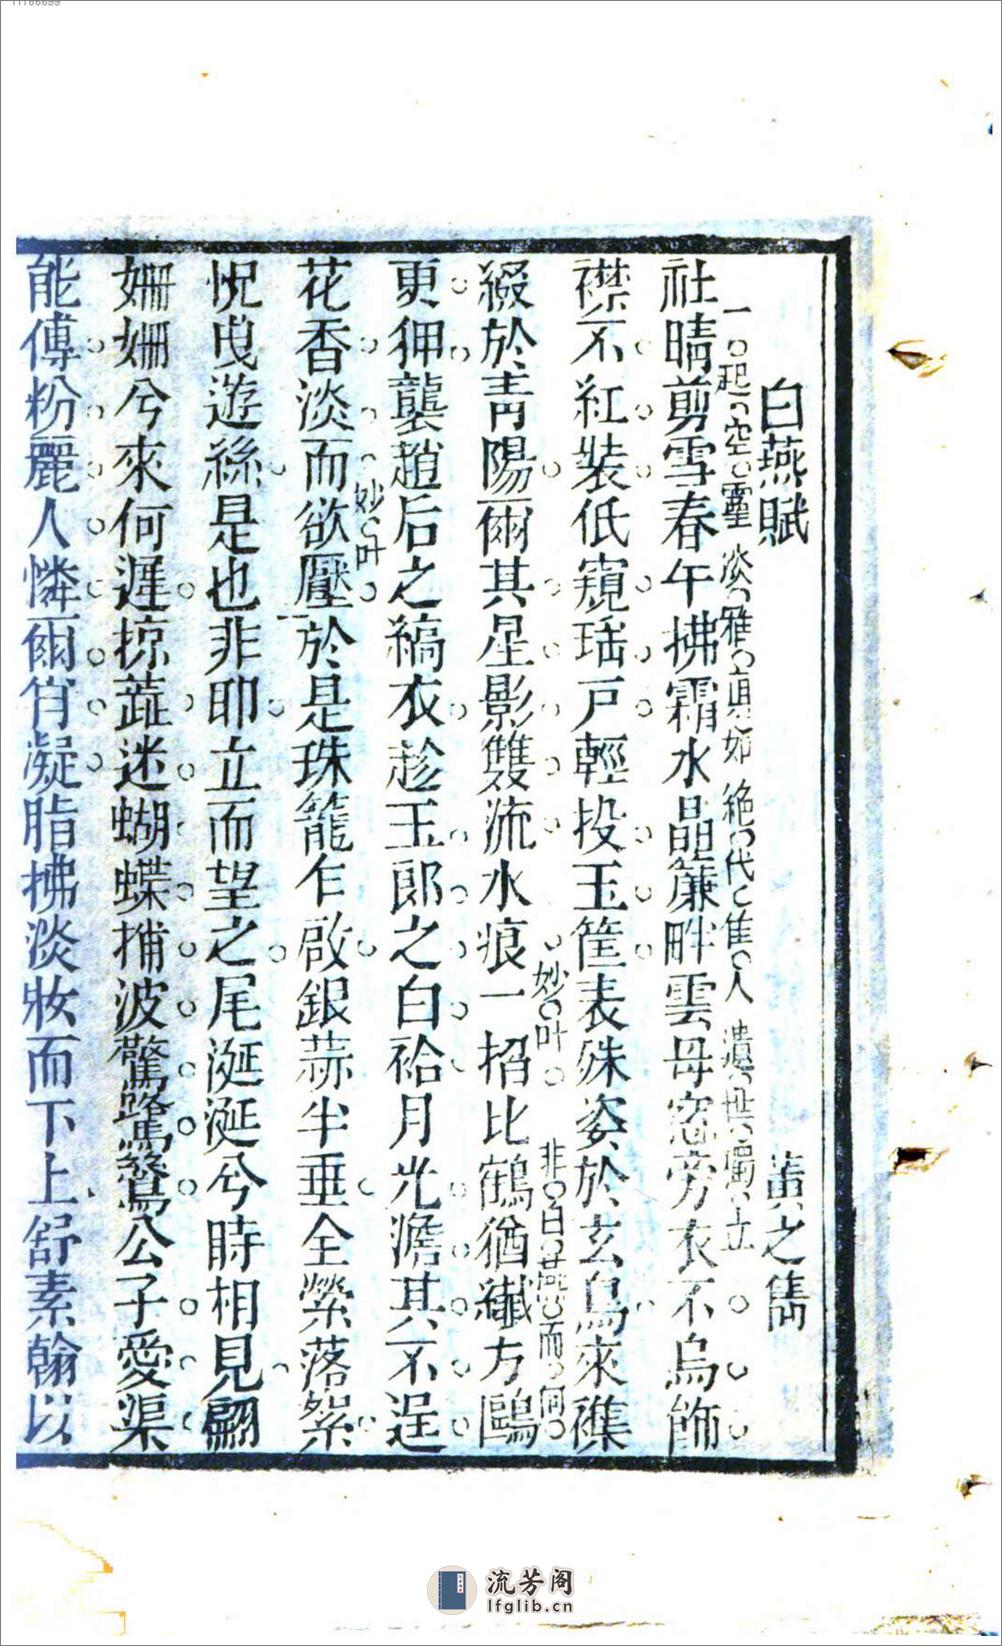 11166699
白燕賦 黃之雋
一起空靈 淡雅宜真如 絕代佳人 遺世獨立
社晴剪雪春午拂霜水晶簾畔雲母窓旁衣不烏飾
襟不紅裝低窺瑶戸輕投玉筐表殊姿於玄鳥來襍
非白燕而何
妙叶
綴於靑陽爾其星影雙流水痕一招比鶴猶纖方鷗
更狎襲趙后之縞衣趁玉郎之白袷月光澹其不逞
妙叶
花香淡而欲壓於是珠籠乍啟銀蒜半垂全縈落絮
怳曳遊絲是也非耶立而望之尾涎涎兮時相見翩
姍姍兮來何遲掠蘂迷蝴蝶捕波驚鷺鷥公子愛渠
能傅粉麗人憐爾肖凝脂拂淡妝而下上舒素翰以
流芳阁
lfglib.cn